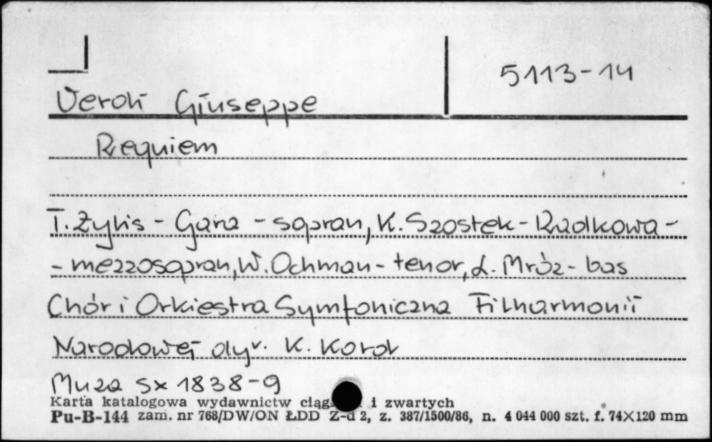 5113-14
Verdi Giuseppe
Requiem
T. Żylis - Gara - sopran, K. Szostek-Radkowa -
- mezzosopran, W. Ochman - tenor, L. Mróz - bas
Chór i Orkiestra Symfoniczna Filharmonii
Narodowej dyr. K. Kord
Muza Sx 1838-9
Karta katalogowa wydawnictw ciąg i zwartych
Pu-B-144 zam. nr 768/DW/ON ŁDD Z-d 2, z. 387/1500/86, n. 4 044 000 szt. f. 74×120 mm